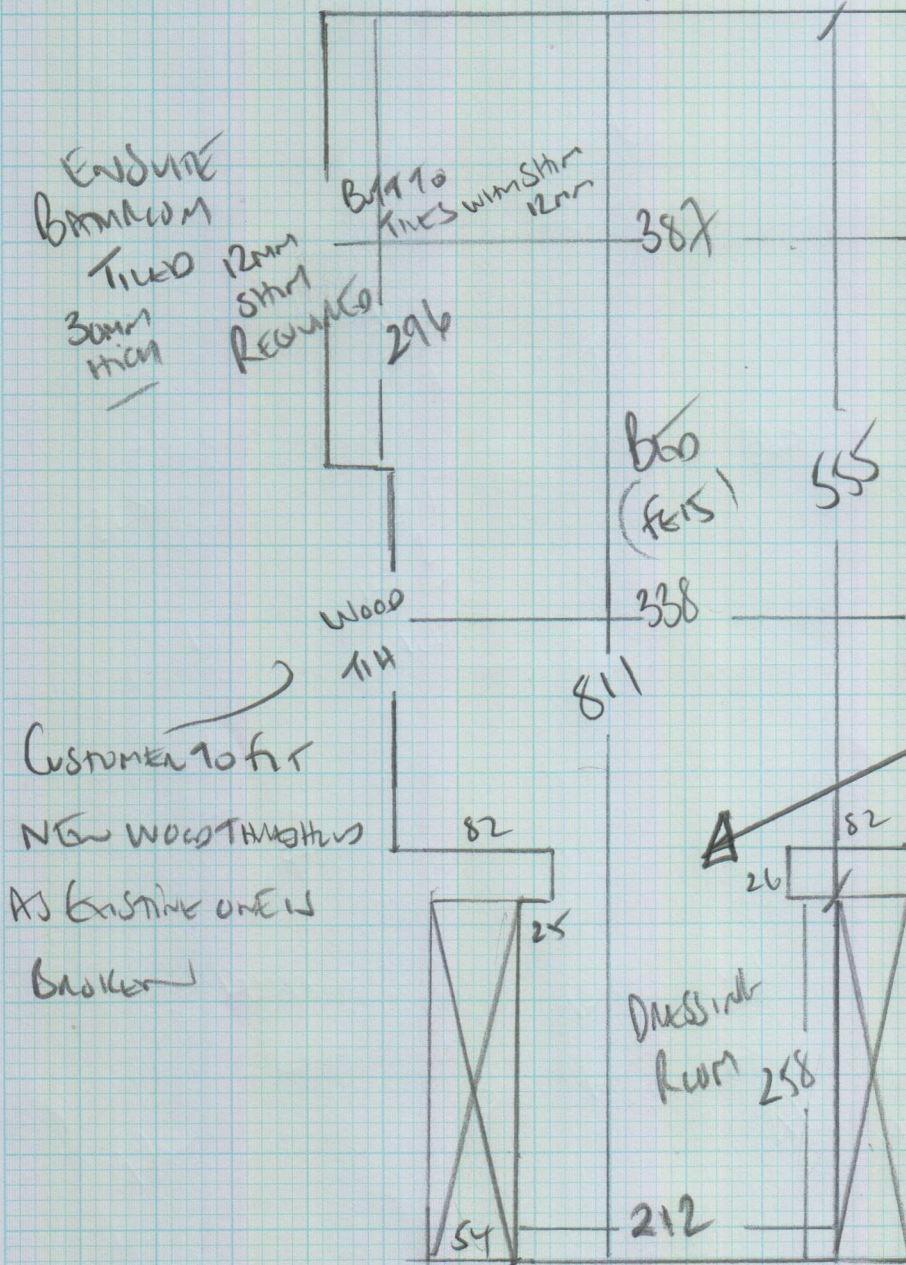 ENSUITE
BATHROOM
TILED 12MM
30MM SHIM
HIGH REQUIRED
BUTT TO
TILES WITH SHIM
12MM
387
296
BED
(FEIS)
555
WOOD
T/H
338
811
CUSTOMER TO FIT
NEW WOOD THRESHOLD
AS EXISTING ONE IS
BROKEN
82
82
26
25
DRESSING
ROOM 258
54
212